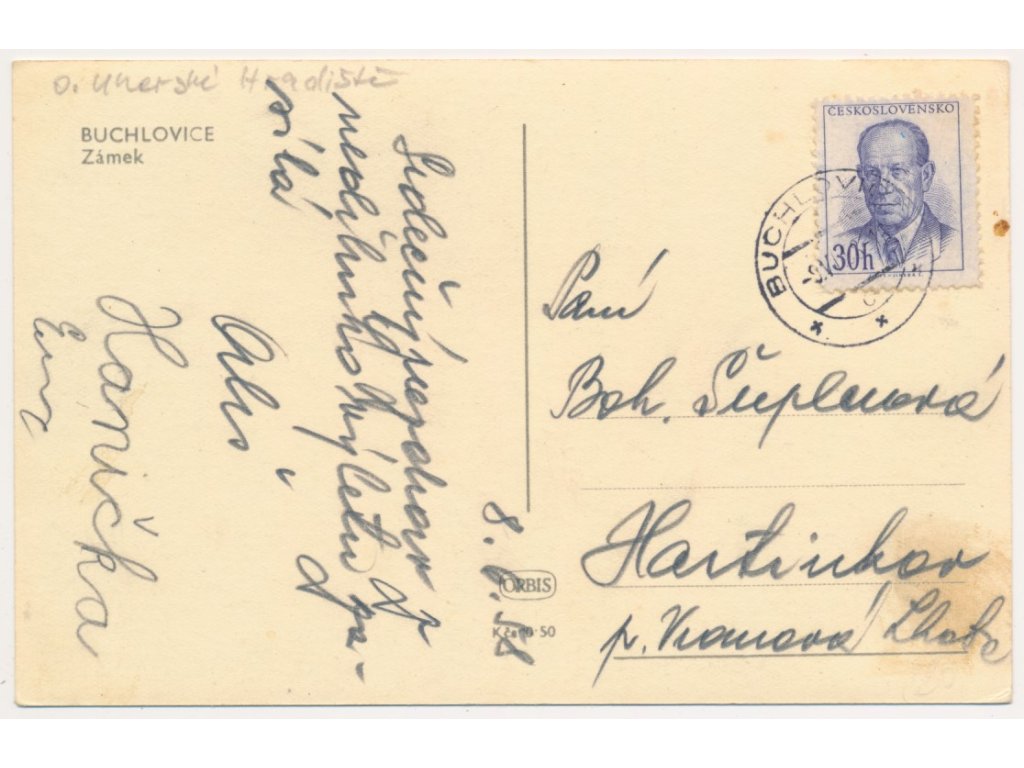 o. Uherské Hradiště
BUCHLOVICE
Zámek
Srdečný pozdrav z
nedělního výletu za-
sílá
Hanička
8. 6. 58
ORBIS
Kčs 0·50
ČESKOSLOVENSKO
30h
BUCHLOV
Paní
Boh. Šuplerová
Hartinkov
p. Vranová Lhota